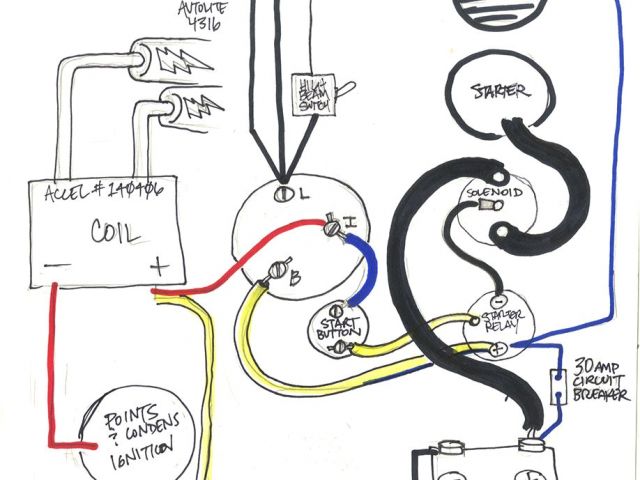 AUTOLITE
4316
HIGH
BEAM
SWITCH
STARTER
ACCEL # 140406
COIL
— +
L
I
B
SOLENOID
START
BUTTON
-
STARTER
RELAY
+
30 AMP
CIRCUIT
BREAKER
POINTS
? CONDENS
IGNITION